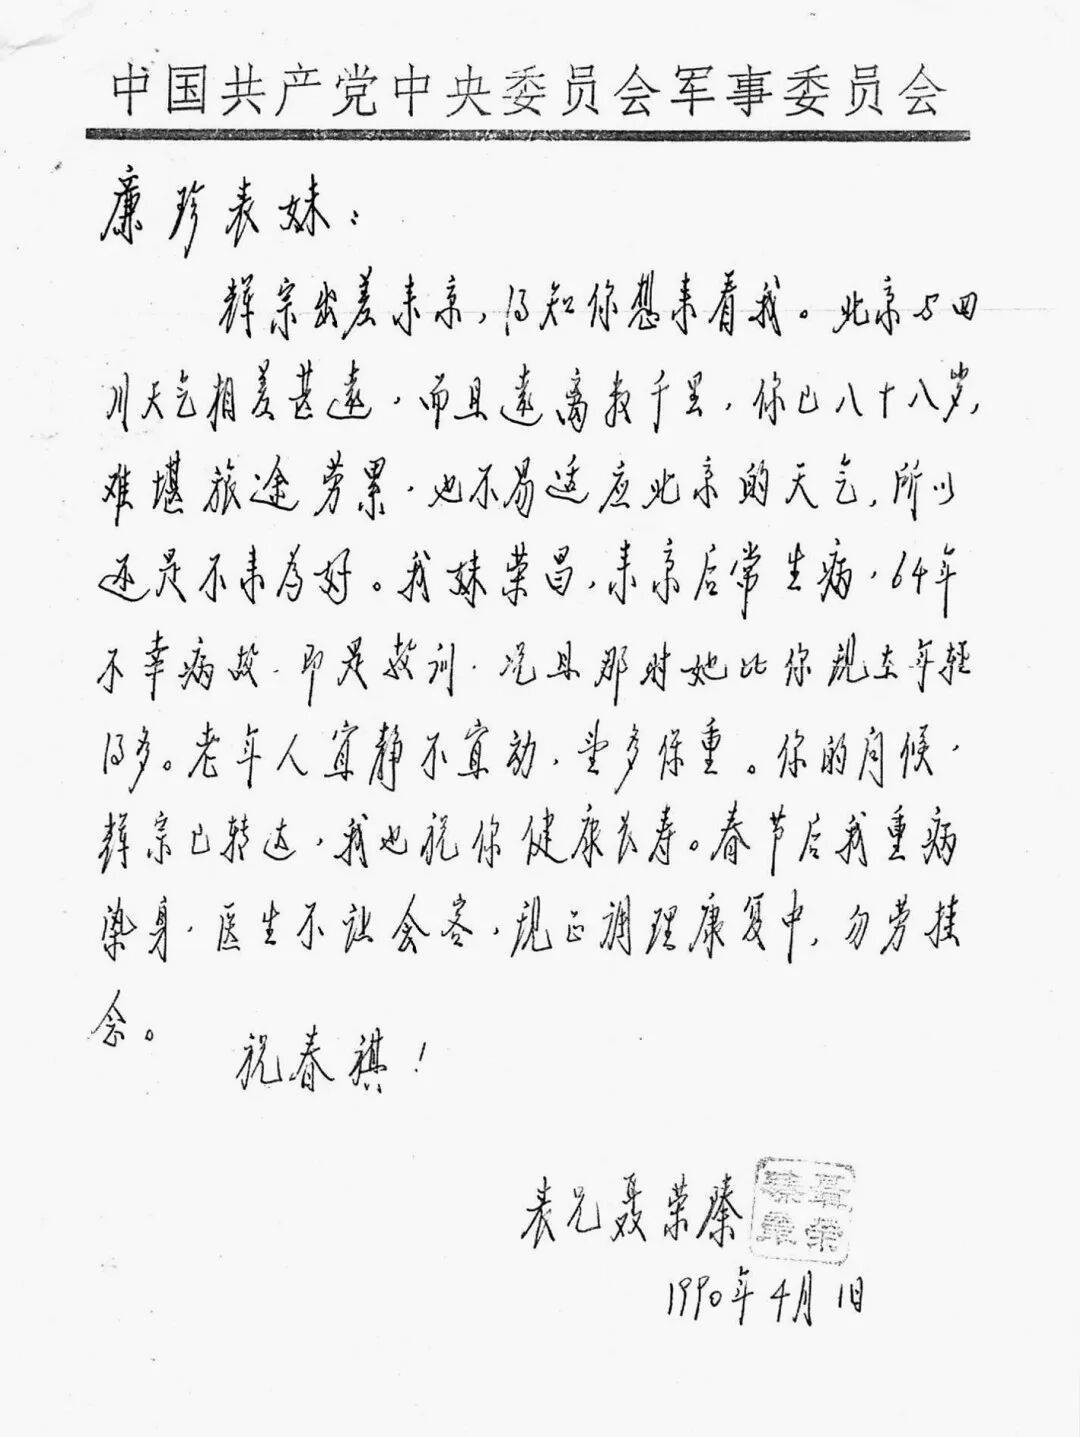 中国共产党中央委员会军事委员会
廉珍表妹：
辉宗出差来京，得知你想来看我。北京与四
川天气相差甚遠，而且遠离数千里，你已八十八岁，
难堪旅途劳累，也不易适应北京的天气，所以
还是不来為好。我妹荣昌，来京后常生病，64年
不幸病故，即是教训，况且那时她比你现在年轻
得多。老年人宜静不宜动，望多保重。你的问候，
辉宗已转达，我也祝你健康长寿。春节后我重病
染身，医生不让会客，现正调理康复中，勿劳挂
念。
祝春祺！
表兄聂荣臻
1990年4月1日